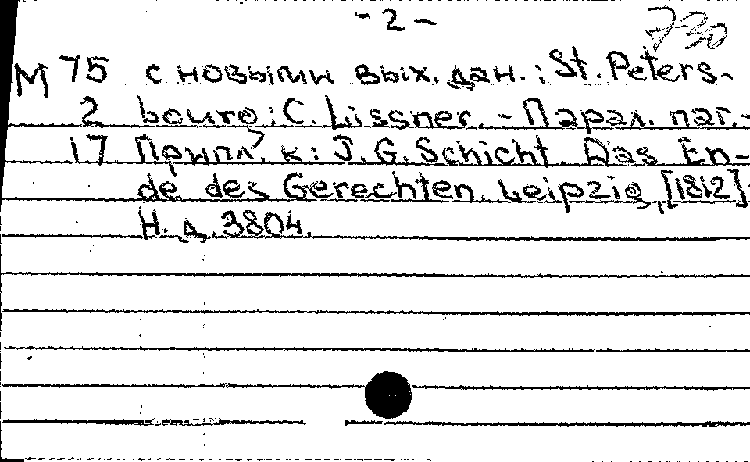 - 2 -
730
М 75 с новыми вых. дан.: St. Peters-
2 bourg: C. Lissner. - Парал. паг.-
17 Припл. к: J. G. Schicht. Das En-
de des Gerechten. Leipzig, [1812]
Н. д. 3804.